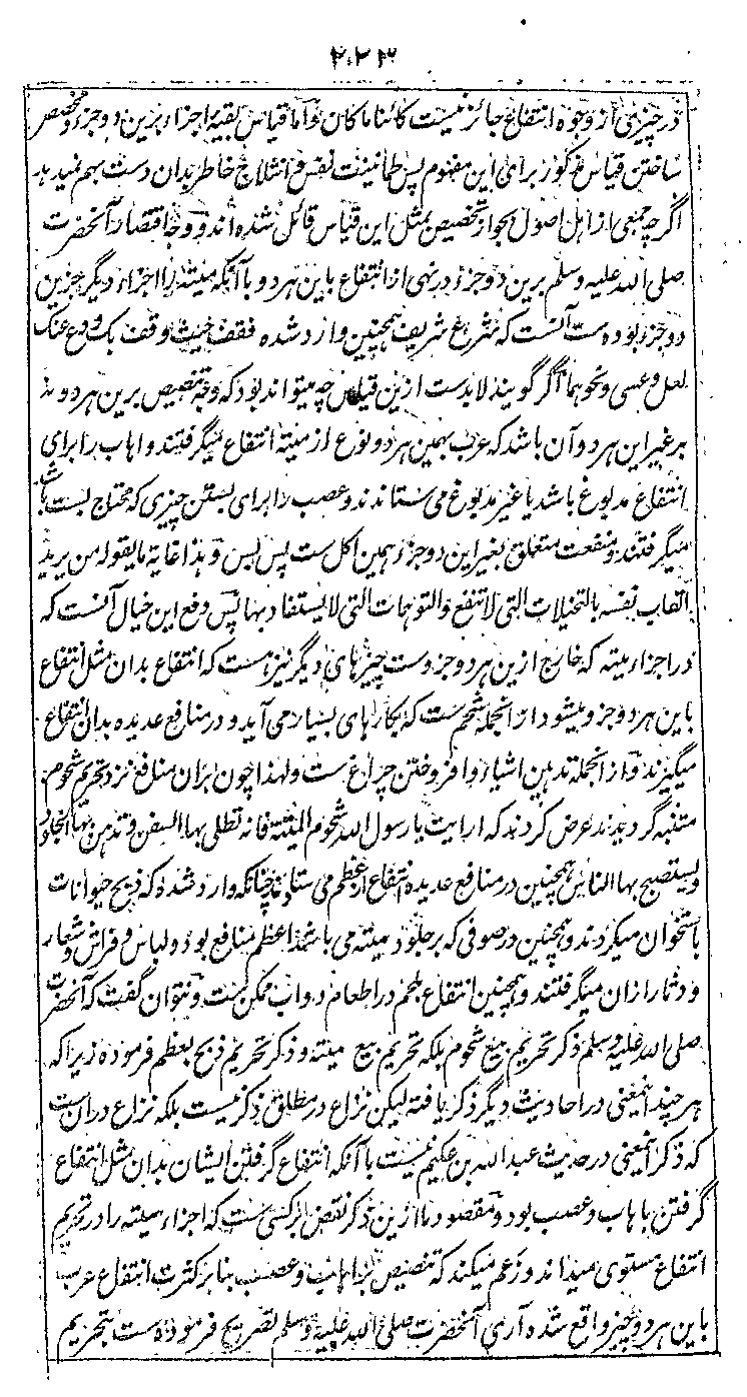 ۲۲۳
در چیزی از وجوه انتفاع جائز نیست کائنا ما کان و اما قیاس بقیه اجزاء برین دو جزء و مخصص
ساختن قیاس مذکور برای این مفهوم پس طمانینت نفس و انثلاج خاطر بدان دست بهم نمیدهد
اگرچه جمعی از اهل اصول بجواز تخصیص بمثل این قیاس قائل شده اند و وجه اقتصار آنحضرت
صلی الله علیه وسلم برین دو جزء در نهی از انتفاع باین هر دو با آنکه میته را اجزاء دیگر جز این
دو جزء بوده ست آنست که شرع شریف همچنین وارد شده فقف حیث وقف بک ودع عنک
لعل وعسی ونحوهما اگر گویند لابدست ازین قیاس چه میتواند بود که وجه تنصیص برین هر دو نه
بر غیر این هر دو آن باشد که عرب بهمین هر دو نوع از میته انتفاع میگرفتند و اهاب را برای
انتفاع مدبوغ باشد یا غیر مدبوغ می ستاندند و عصب را برای بستن چیزی که محتاج بست باشد
میگرفتند و منفعت متعلق بغیر این دو جزء همین اکل ست پس بس وهذا غایة ما یقوله من یرید
اتعاب نفسه بالتخیلات التی لا تنفع والتوهمات التی لا یستفاد بها پس دفع این خیال آنست که
در اجزاء میته که خارج ازین هر دو جزوست چیزهای دیگر نیز هست که انتفاع بدان مثل انتفاع
باین هر دو جزو میشود از انجمله شحم ست که بکارهای بسیار می آید و در منافع عدیده بدان انتفاع
میگیرند و از انجمله تدهین اشیاء و افروختن چراغ ست ولهذا چون بران منافع نزد تحریم شحوم
متنبه گردیدند عرض کردند که ارایت یا رسول الله شحوم المیتة فانه تطلی بها السفن وتدهن بها الجلود
ویستصبح بها الناس همچنین در منافع عدیده انتفاع از عظم می ستانند چنانکه وارد شده که ذبح حیوانات
باستخوان میکردند و همچنین در صوفی که بر جلود میته می باشد اعظم منافع بود و لباس و فراش و شعار
و دثار ازان میگرفتند و همچنین انتفاع بلحم در اطعام دواب ممکن ست و نتوان گفت که آنحضرت
صلی الله علیه وسلم ذکر تحریم بیع شحوم بلکه تحریم بیع میته و ذکر تحریم ذبح بعظم فرموده زیرا که
هر چند اینمعنی در احادیث دیگر ذکر یافته لیکن نزاع در مطلق ذکر نیست بلکه نزاع دران ست
که ذکر اینمعنی در حدیث عبد الله بن عکیم نیست با آنکه انتفاع گرفتن ایشان بدان مثل انتفاع
گرفتن باهاب و عصب بود و مقصود ما ازین ذکر نقض بر کسی ست که اجزاء میته را در تحریم
انتفاع مستوی میداند و زعم میکند که تنصیص بر اهاب و عصب بنا بر کثرت انتفاع عرب
باین هر دو چیز واقع شده آری آنحضرت صلی الله علیه وسلم تصریح فرموده ست بتحریم